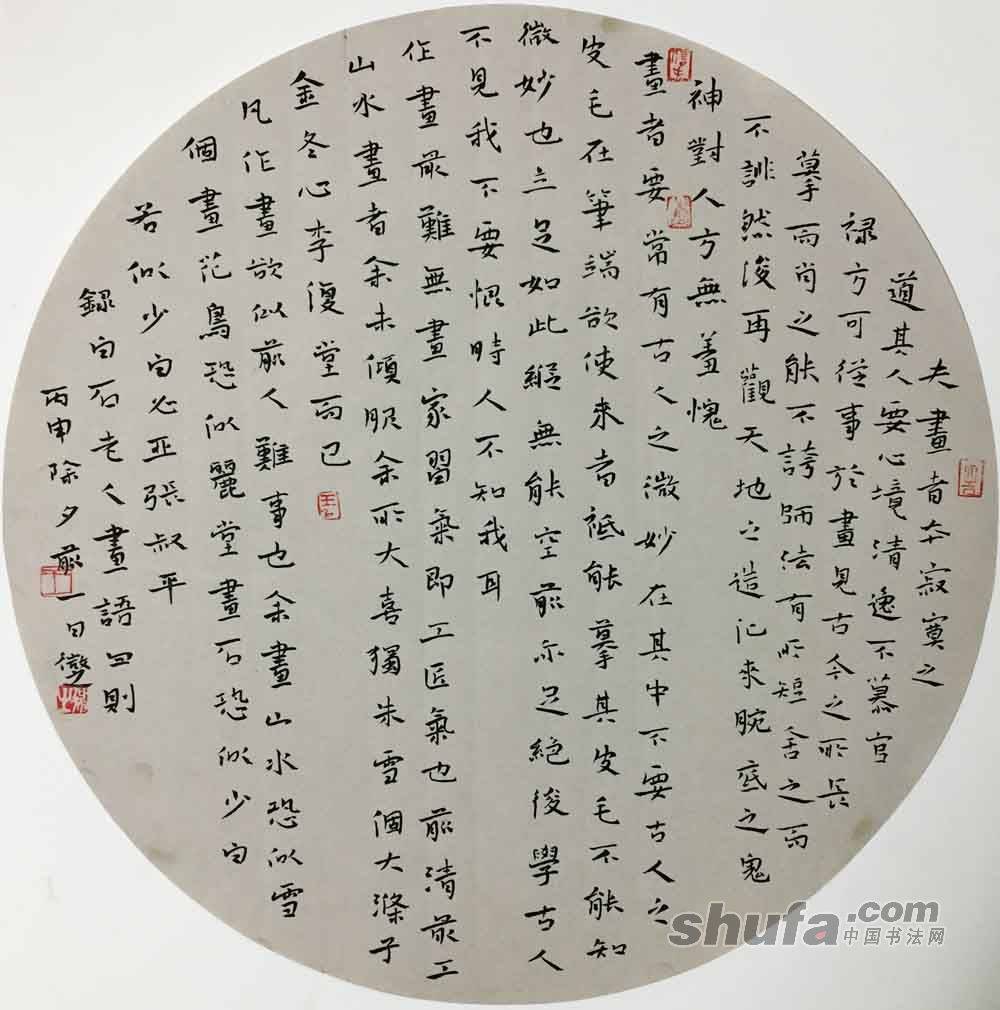 夫畫者本寂寞之
道其人要心境清逸不慕官
祿方可從事於畫見古今之所長
摹而肖之能不誇師法有所短舍之而
不誹然後再觀天地之造化來腕底之鬼
神對人方無羞愧
畫者要常有古人之微妙在其中不要古人之
皮毛在筆端欲使來者祗能摹其皮毛不能知
微妙也立足如此縱無能空前亦足絕後學古人
不見我不要恨時人不知我耳
作畫最難無畫家習氣即工匠氣也前清最工
山水畫者余未傾服余所大喜獨朱雪個大滌子
金冬心李復堂而已
凡作畫欲似前人難事也余畫山水恐似雪
個畫花鳥恐似麗堂畫石恐似少白
若似少白必亞張叔平
錄白石老人畫語四則
丙申除夕前一日
shufa.com
中国书法网